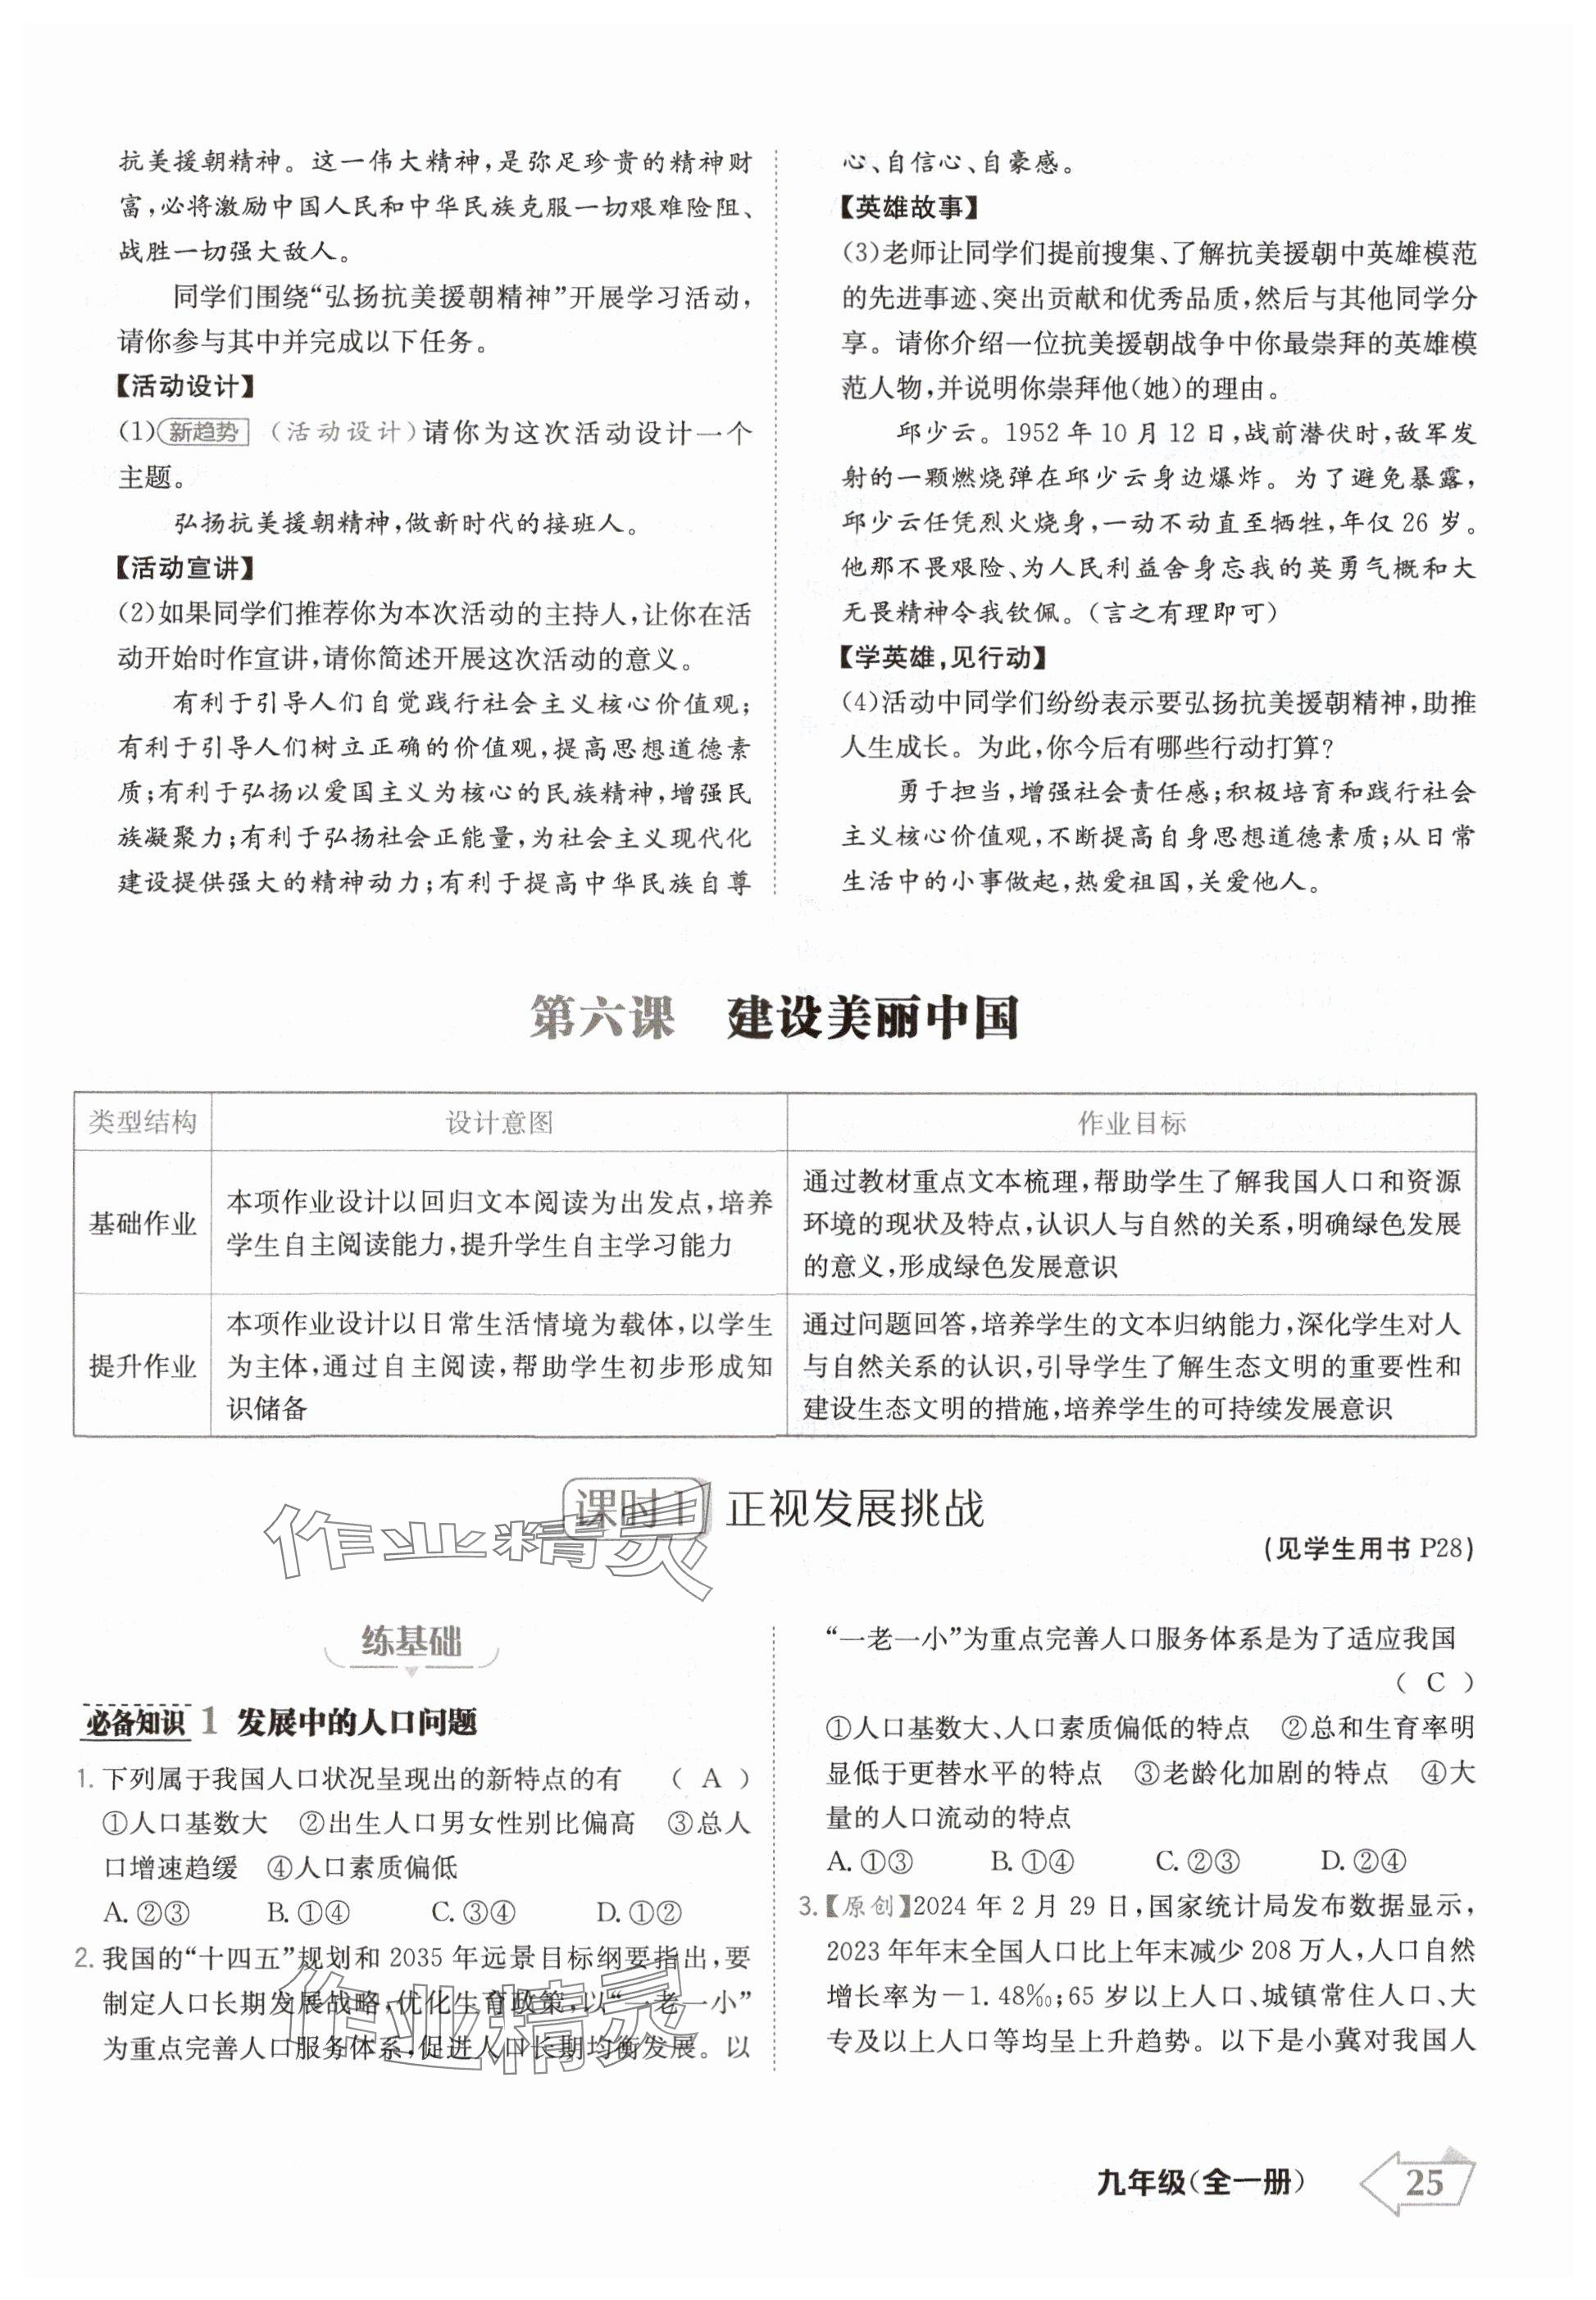 抗美援朝精神。这一伟大精神,是弥足珍贵的精神财
富,必将激励中国人民和中华民族克服一切艰难险阻、
战胜一切强大敌人。
同学们围绕“弘扬抗美援朝精神”开展学习活动,
请你参与其中并完成以下任务。
【活动设计】
(1)新趋势 (活动设计)请你为这次活动设计一个
主题。
弘扬抗美援朝精神,做新时代的接班人。
【活动宣讲】
(2)如果同学们推荐你为本次活动的主持人,让你在活
动开始时作宣讲,请你简述开展这次活动的意义。
有利于引导人们自觉践行社会主义核心价值观;
有利于引导人们树立正确的价值观,提高思想道德素
质;有利于弘扬以爱国主义为核心的民族精神,增强民
族凝聚力;有利于弘扬社会正能量,为社会主义现代化
建设提供强大的精神动力;有利于提高中华民族自尊
心、自信心、自豪感。
【英雄故事】
(3)老师让同学们提前搜集、了解抗美援朝中英雄模范
的先进事迹、突出贡献和优秀品质,然后与其他同学分
享。请你介绍一位抗美援朝战争中你最崇拜的英雄模
范人物,并说明你崇拜他(她)的理由。
邱少云。1952年10月12日,战前潜伏时,敌军发
射的一颗燃烧弹在邱少云身边爆炸。为了避免暴露,
邱少云任凭烈火烧身,一动不动直至牺牲,年仅26岁。
他那不畏艰险、为人民利益舍身忘我的英勇气概和大
无畏精神令我钦佩。(言之有理即可)
【学英雄,见行动】
(4)活动中同学们纷纷表示要弘扬抗美援朝精神,助推
人生成长。为此,你今后有哪些行动打算?
勇于担当,增强社会责任感;积极培育和践行社会
主义核心价值观,不断提高自身思想道德素质;从日常
生活中的小事做起,热爱祖国,关爱他人。
第六课 建设美丽中国
类型结构 设计意图 作业目标
基础作业
本项作业设计以回归文本阅读为出发点,培养
学生自主阅读能力,提升学生自主学习能力
通过教材重点文本梳理,帮助学生了解我国人口和资源
环境的现状及特点,认识人与自然的关系,明确绿色发展
的意义,形成绿色发展意识
提升作业
本项作业设计以日常生活情境为载体,以学生
为主体,通过自主阅读,帮助学生初步形成知
识储备
通过问题回答,培养学生的文本归纳能力,深化学生对人
与自然关系的认识,引导学生了解生态文明的重要性和
建设生态文明的措施,培养学生的可持续发展意识
课时1 正视发展挑战
作业精灵
(见学生用书P28)
练基础
必备知识 1 发展中的人口问题
1. 下列属于我国人口状况呈现出的新特点的有 ( A )
①人口基数大 ②出生人口男女性别比偏高 ③总人
口增速趋缓 ④人口素质偏低
A. ②③ B. ①④ C. ③④ D. ①②
2. 我国的“十四五”规划和2035年远景目标纲要指出,要
制定人口长期发展战略,优化生育政策,以“一老一小”
为重点完善人口服务体系,促进人口长期均衡发展。以
作业精灵
“一老一小”为重点完善人口服务体系是为了适应我国
( C )
①人口基数大、人口素质偏低的特点 ②总和生育率明
显低于更替水平的特点 ③老龄化加剧的特点 ④大
量的人口流动的特点
A. ①③ B. ①④ C. ②③ D. ②④
3.【原创】2024年2月29日,国家统计局发布数据显示,
2023年年末全国人口比上年末减少208万人,人口自然
增长率为-1.48‰;65岁以上人口、城镇常住人口、大
专及以上人口等均呈上升趋势。以下是小冀对我国人
九年级(全一册) 25